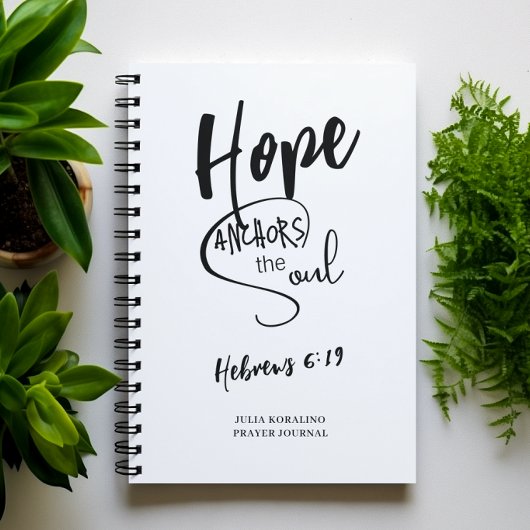 Hope
ANCHORS
the
Soul
Hebrews 6:19
JULIA KORALINO
PRAYER JOURNAL